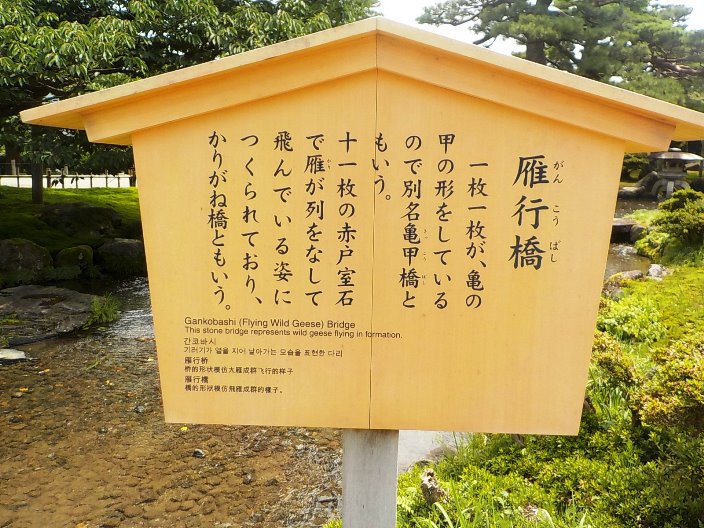 雁行橋
がんこうばし
一枚一枚が、亀の
甲の形をしている
ので別名亀甲橋と
きっこうばし
もいう。
十一枚の赤戸室石
で雁が列をなして
かり
飛んでいる姿に
つくられており、
かりがね橋ともいう。
Gankobashi (Flying Wild Geese) Bridge
This stone bridge represents wild geese flying in formation.
간코바시
기러기가 열을 지어 날아가는 모습을 표현한 다리
雁行桥
桥的形状模仿大雁成群飞行的样子
雁行橋
橋的形狀模仿飛雁成群的樣子。